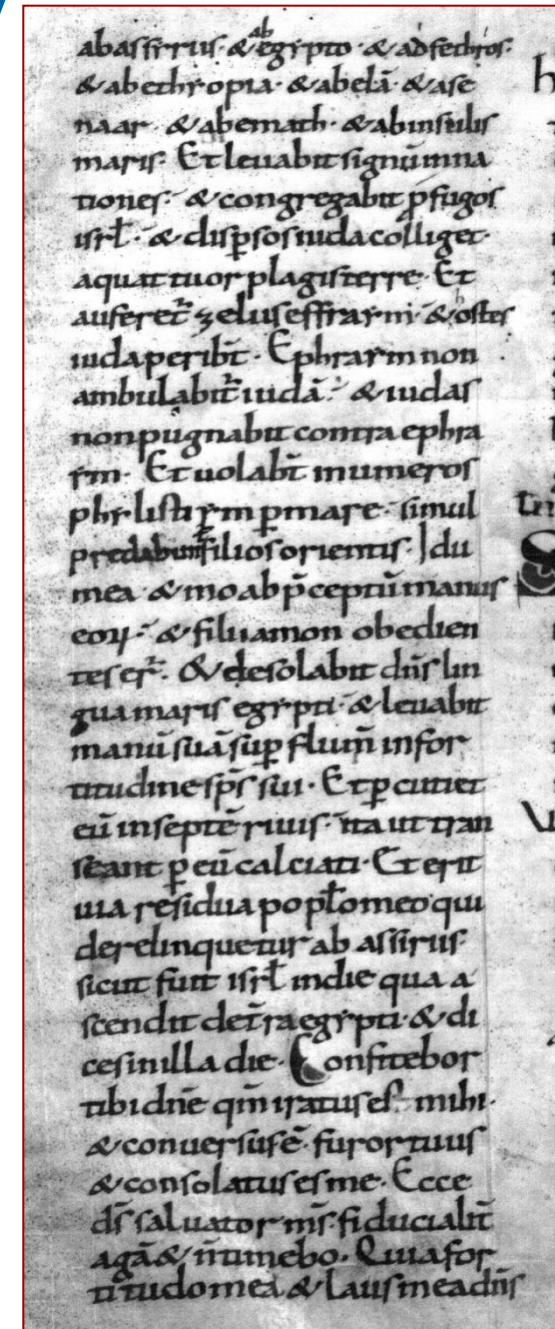 abassyriis· & ab egypto · & adfethros·
& abethyopia · & abelā · & ase
naar · & abemath · & abinsulis
maris· Et leuabit signū inna
tiones· & congregabit ꝓfugos
isrł · & disꝑsos iuda colliget·
aquattuor plagis terre · Et
auferet̄ zelus effraym · & hostes
iuda peribt̄ · Ephraym non
ambulabit̄ iudā · & iudas
non pugnabit contra ephra
ym · Et uolabt̄ inumeros
phylistiym ꝑmare · simul
predabunt filios orientis · Idu
mea · & moab p̄ceptū manus
eoꝝ · & filii amon obedien
tes er̄ · & desolabit dn̄s lin
gua maris egypti · & leuabit
manū suā suꝑ flum̄ infor
titudine sp̄s sui · Et ꝑcutiet
eū inseptē riuis · ita ut tran
seant ꝑ eū calciati · Et erit
uia residua popło meo qui
derelinquetur ab assiriis·
sicut fuit isrł indie qua a
scendit det̄ra egypti · & di
ces inilla die · Confitebor
tibi dn̄e qm̄ iratus es · mihi ·
& conuersus ē · furor tuus
& consolatus es me · Ecce
ds̄ saluator ms̄ · fiducialit̄
agā & n̄ timebo · Quia for
titudo mea & laus mea dn̄s